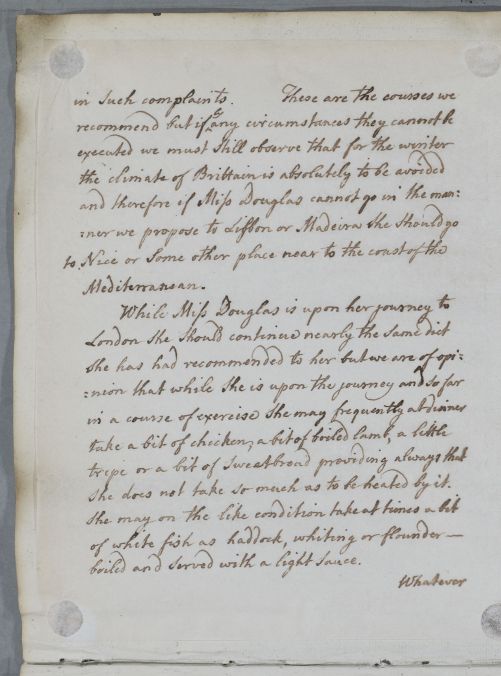 in such complaints. These are the courses we
recommend but if by any circumstances they cannot be
executed we must still observe that for the winter
the climate of Brittain is absolutely to be avoided
and therefore if Miss Douglas cannot go in the man:
:ner we propose to Lisbon or Madeira she should go
to Nice or some other place near to the coast of the
Mediterranean.
While Miss Douglas is upon her journey to
London she should continue nearly the same diet
she has had recommended to her but we are of opi:
:nion that while she is upon the journey and so far
in a course of exercise she may frequently at dinner
take a bit of chicken, a bit of boiled lamb, a little
tripe or a bit of sweetbread providing always that
she does not take so much as to be heated by it.
She may on the like condition take at times a bit
of white fish as haddock, whiting or flounder —
boiled and served with a light sauce.
Whatever